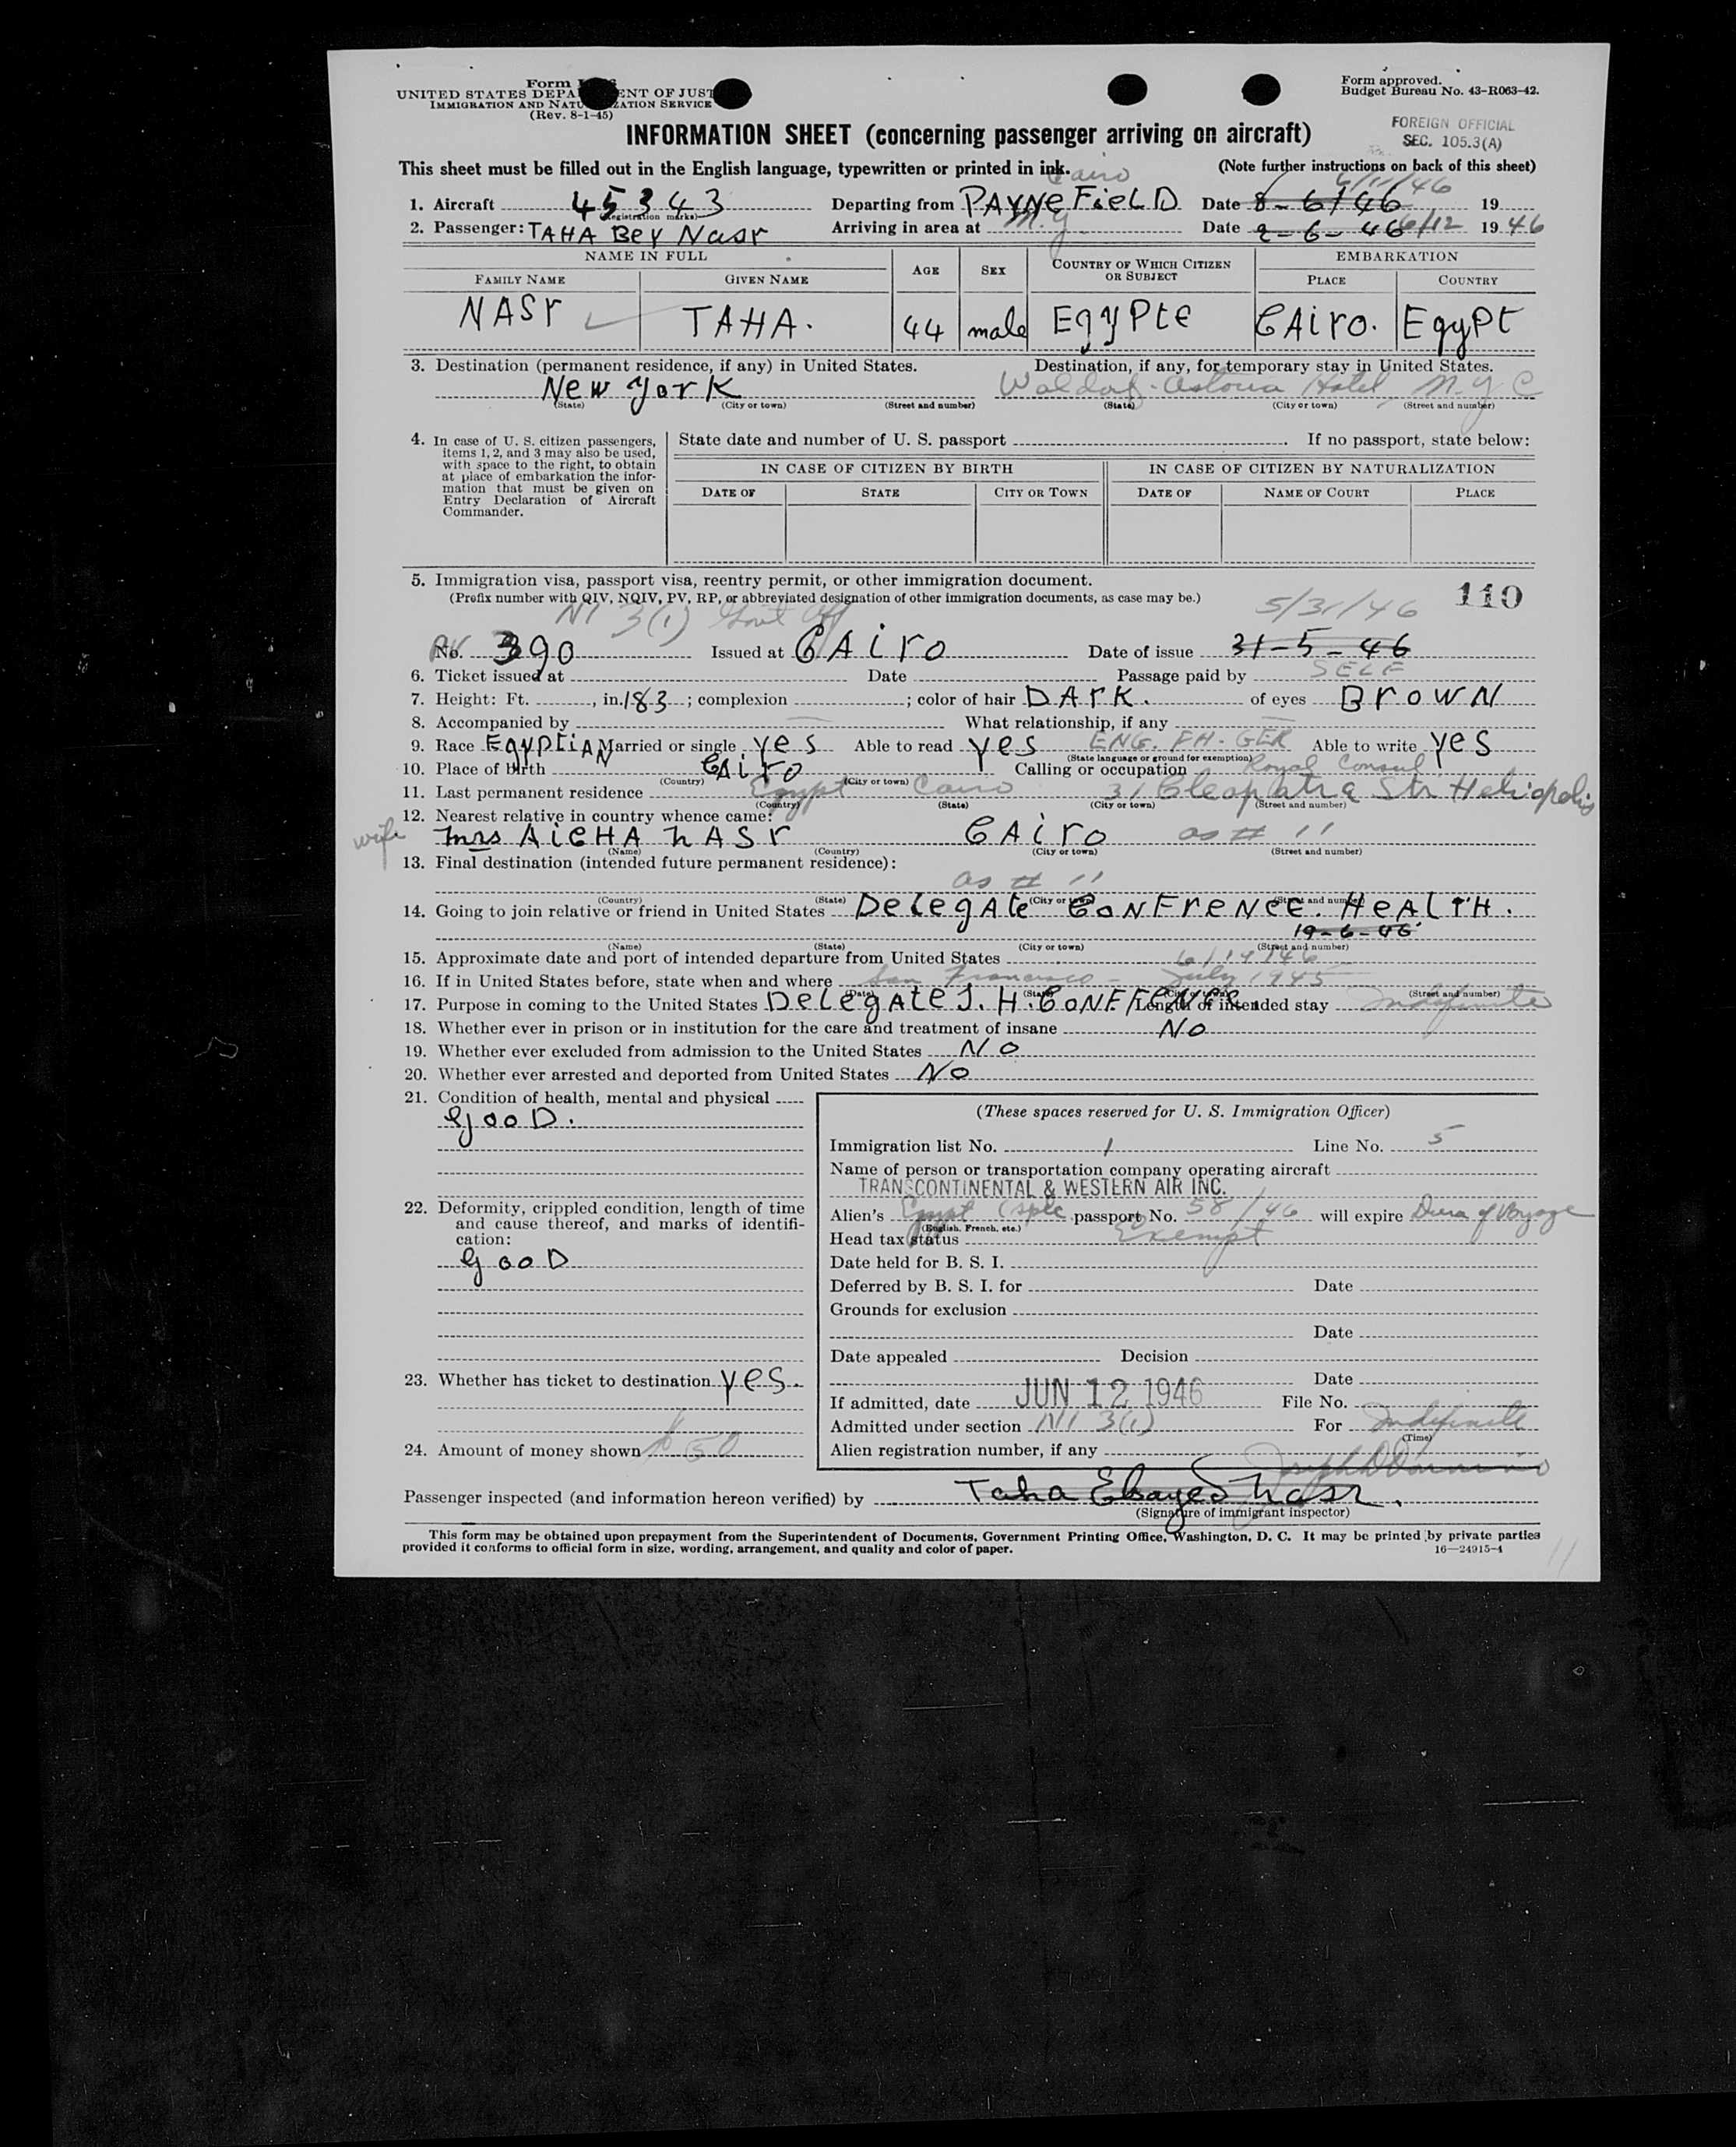 Form
UNITED STATES DEPA ENT OF JUST
IMMIGRATION AND NATU ZATION SERVICE
(Rev. 8-1-45)
Form approved.
Budget Bureau No. 43-R063-42.
INFORMATION SHEET (concerning passenger arriving on aircraft)
FOREIGN OFFICIAL
SEC. 105.3(A)
This sheet must be filled out in the English language, typewritten or printed in ink. (Note further instructions on back of this sheet)
Cairo 6/11/46
1. Aircraft 45343 Departing from PAYNE FieLD Date 8-6/46 19
(Registration marks)
2. Passenger: TAHA Bey Nasr Arriving in area at N.Y. Date 2-6-46 6/12 1946
NAME IN FULL AGE SEX COUNTRY OF WHICH CITIZEN OR SUBJECT EMBARKATION
FAMILY NAME GIVEN NAME PLACE COUNTRY
NASr TAHA. 44 male EgyPte CAiro. EgyPt
3. Destination (permanent residence, if any) in United States. Destination, if any, for temporary stay in United States.
New York Waldorf-Astoria Hotel, N.Y.C
(State) (City or town) (Street and number) (State) (City or town) (Street and number)
4. In case of U. S. citizen passengers, items 1, 2, and 3 may also be used, with space to the right, to obtain at place of embarkation the information that must be given on Entry Declaration of Aircraft Commander.
State date and number of U. S. passport . If no passport, state below:
IN CASE OF CITIZEN BY BIRTH IN CASE OF CITIZEN BY NATURALIZATION
DATE OF STATE CITY OR TOWN DATE OF NAME OF COURT PLACE
5. Immigration visa, passport visa, reentry permit, or other immigration document.
(Prefix number with QIV, NQIV, PV, RP, or abbreviated designation of other immigration documents, as case may be.)
110
NI 3(1) Govt Off 5/31/46
No. 390 Issued at CAiro Date of issue 31-5-46
6. Ticket issued at Date Passage paid by SELF
7. Height: Ft. , in. 183 ; complexion ; color of hair DArK. of eyes BrowN
8. Accompanied by What relationship, if any
9. Race EgyptiAN Married or single yes Able to read yes ENG. FH. GER Able to write yes
(State language or ground for exemption)
10. Place of birth CAiro Calling or occupation Royal Consul
(Country) (City or town)
11. Last permanent residence Egypt Cairo 31 Cleopatra Str Heliopolis
(Country) (State) (City or town) (Street and number)
12. Nearest relative in country whence came:
wife mrs AicHA NASr CAiro as # 11
(Name) (Country) (City or town) (Street and number)
13. Final destination (intended future permanent residence):
as # 11
(Country) (State) (City or town) (Street and number)
14. Going to join relative or friend in United States DelegAte CoNFreNce. HeAlTH.
19-6-46
(Name) (State) (City or town) (Street and number)
15. Approximate date and port of intended departure from United States 6/19/46
16. If in United States before, state when and where San Francisco - July 1945
(Date) (State) (City or town) (Street and number)
17. Purpose in coming to the United States DelegAte J. H. CoNFreNce. Length of intended stay Indefinite
18. Whether ever in prison or in institution for the care and treatment of insane No
19. Whether ever excluded from admission to the United States No
20. Whether ever arrested and deported from United States No
21. Condition of health, mental and physical
gooD.
22. Deformity, crippled condition, length of time and cause thereof, and marks of identification:
gooD
23. Whether has ticket to destination yes.
24. Amount of money shown $50
(These spaces reserved for U. S. Immigration Officer)
Immigration list No. 1 Line No. 5
Name of person or transportation company operating aircraft
TRANSCONTINENTAL & WESTERN AIR INC.
Alien's Egypt passport No. 58/46 will expire Dura of Voyage
(English, French, etc.)
Head tax status Exempt
Date held for B. S. I.
Deferred by B. S. I. for Date
Grounds for exclusion
Date
Date appealed Decision
Date
If admitted, date JUN 12 1946 File No.
Admitted under section NI 3(1) For Indefinite
(Time)
Alien registration number, if any
Passenger inspected (and information hereon verified) by Taha Elsayed Nasr.
(Signature of immigrant inspector)
This form may be obtained upon prepayment from the Superintendent of Documents, Government Printing Office, Washington, D. C. It may be printed by private parties
provided it conforms to official form in size, wording, arrangement, and quality and color of paper. 16—24915-4
11